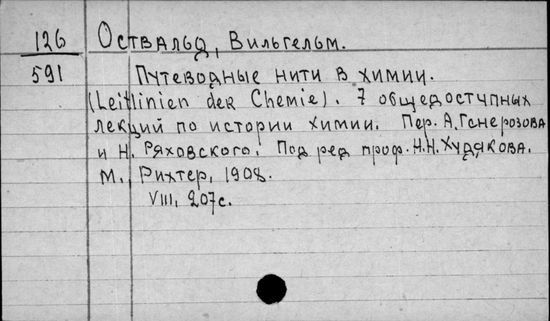 126 Оствальд, Вильгельм.
591 Путеводные нити в химии.
(Leitlinien der Chemie). 7 общедоступных
лекций по истории химии. Пер. А. Генерозова
и Н. Ряховского. Под ред проф. Н.Н. Худякова.
М., Рихтер, 1908.
VIII, 207 с.